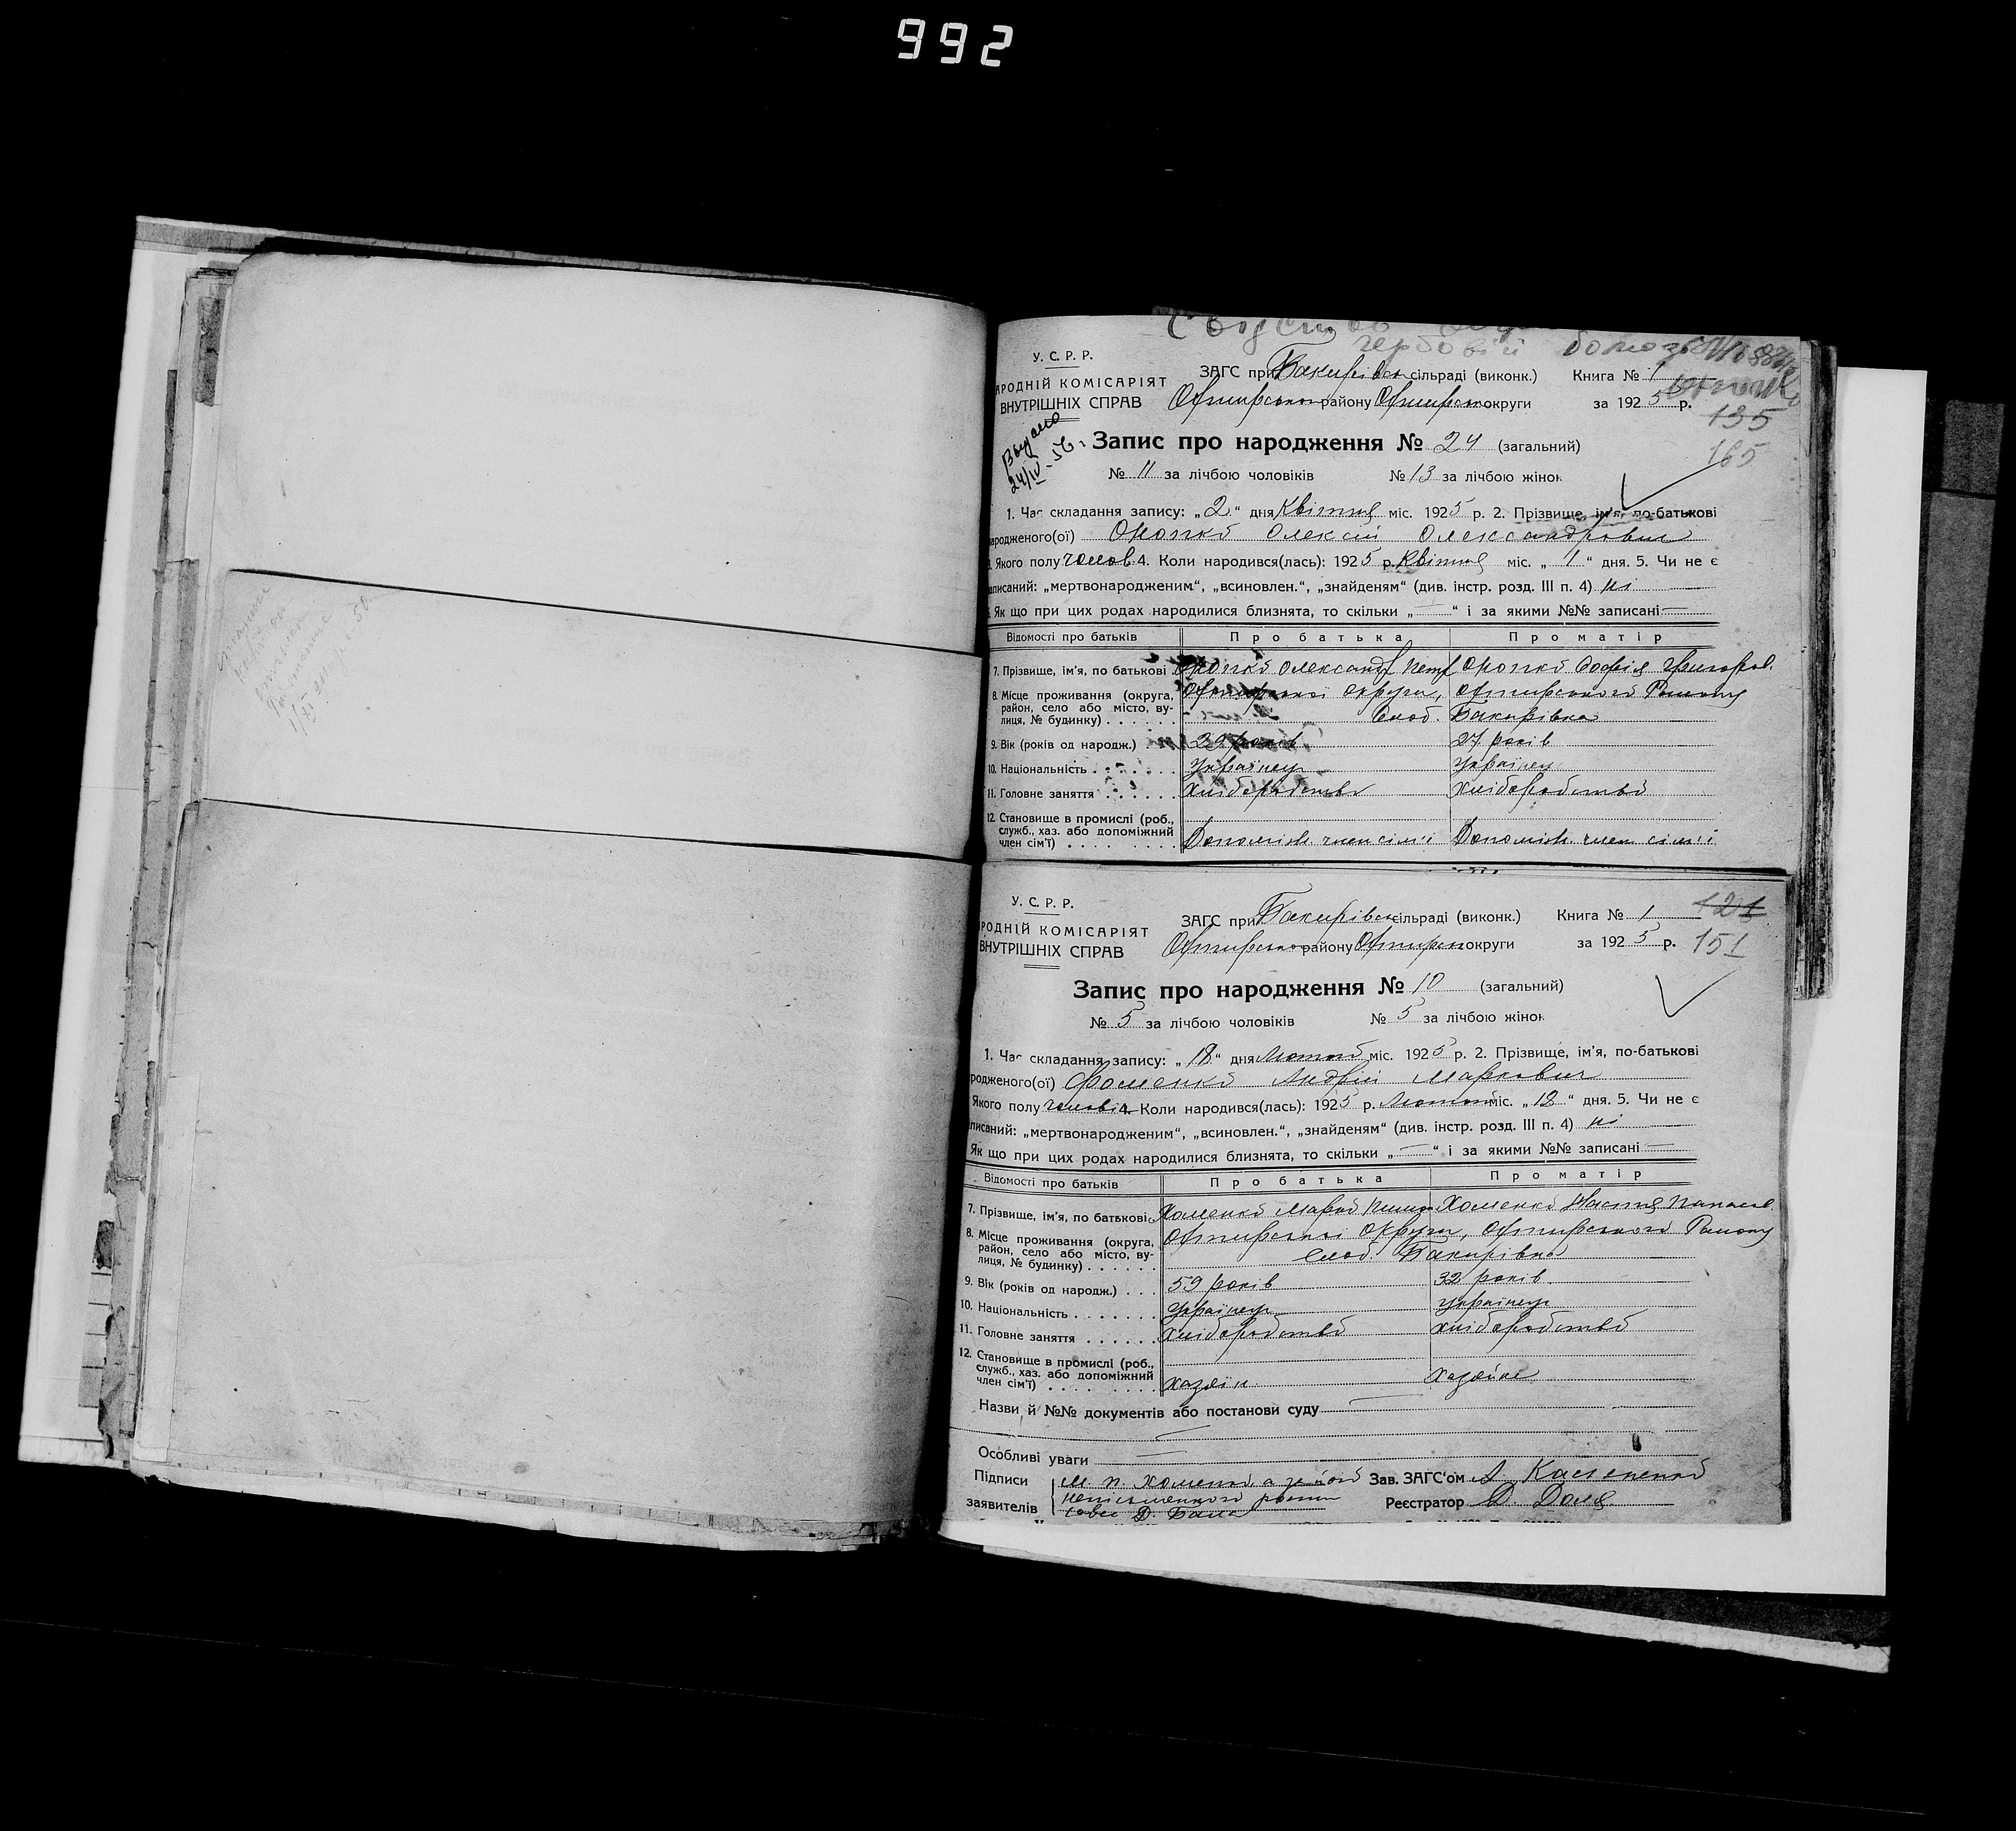 992
У. С. Р. Р.
АРОДНІЙ КОМІСАРІЯТ
ВНУТРІШНІХ СПРАВ
ЗАГС при Бакирівск сільраді (виконк.) Книга № 1
Охтирського району Охтирськ округи за 1925 р.
135
165
Выдано
24/IV-56.
Запис про народження № 24 (загальний)
№ 11 за лічбою чоловіків № 13 за лічбою жінок
1. Час складання запису: „2“ дня Квітня міс. 1925 р. 2. Прізвище, ім'я, по-батькові
ародженого(ої) Олексій Олександрович
Якого полу чолов. 4. Коли народився(лась): 1925 р. Квітня міс. „1“ дня. 5. Чи не є
аписаний: „мертвонародженим“, „всиновлен.“, „знайденям“ (див. інстр. розд. III п. 4) ні
Як що при цих родах народилися близнята, то скільки „—“ і за якими №№ записані —
Відомості про батьків Про батька Про матір
7. Прізвище, ім'я, по батькові Олександр Петр Софія Григоров.
8. Місце проживання (округа, Охтирської округи, Охтирського Району
район, село або місто, ву-
лиця, № будинку) Слоб. Бакирівка
9. Вік (років од народж.) 29 років 27 років
10. Національність Українец Українец
11. Головне заняття Хліборобство Хліборобство
12. Становище в промислі (роб.,
служб., хаз. або допоміжний
член сім'ї) Допоміж. член сім'ї Допоміж. член сім'ї
У. С. Р. Р.
РОДНІЙ КОМІСАРІЯТ
ВНУТРІШНІХ СПРАВ
ЗАГС при Бакирівск сільраді (виконк.) Книга № 1
Охтирського району Охтирськ округи за 1925 р.
121
151
Запис про народження № 10 (загальний)
№ 5 за лічбою чоловіків № 5 за лічбою жінок
1. Час складання запису: „18“ дня Лютого міс. 1925 р. 2. Прізвище, ім'я, по-батькові
родженого(ої) Фоменко Андрій Маркович
Якого полу чоловіч. 4. Коли народився(лась): 1925 р. Лютого міс. „12“ дня. 5. Чи не є
писаний: „мертвонародженим“, „всиновлен.“, „знайденям“ (див. інстр. розд. III п. 4) ні
Як що при цих родах народилися близнята, то скільки „—“ і за якими №№ записані —
Відомості про батьків Про батька Про матір
7. Прізвище, ім'я, по батькові Хоменко Марко Хоменко Настя Панасов.
8. Місце проживання (округа, Охтирської округи, Охтирського Району
район, село або місто, ву-
лиця, № будинку) слоб. Бакирівка
9. Вік (років од народж.) 59 років 32 років
10. Національність Українец Українец
11. Головне заняття Хліборобство Хліборобство
12. Становище в промислі (роб.,
служб., хаз. або допоміжний
член сім'ї) Хазяїн Хазяйка
Назви й №№ документів або постанови суду —
Особливі уваги —
Підписи М. П. Хоменко, а за його Зав. ЗАГС'ом А.
заявителів неписьменного Реєстратор Д. Доля